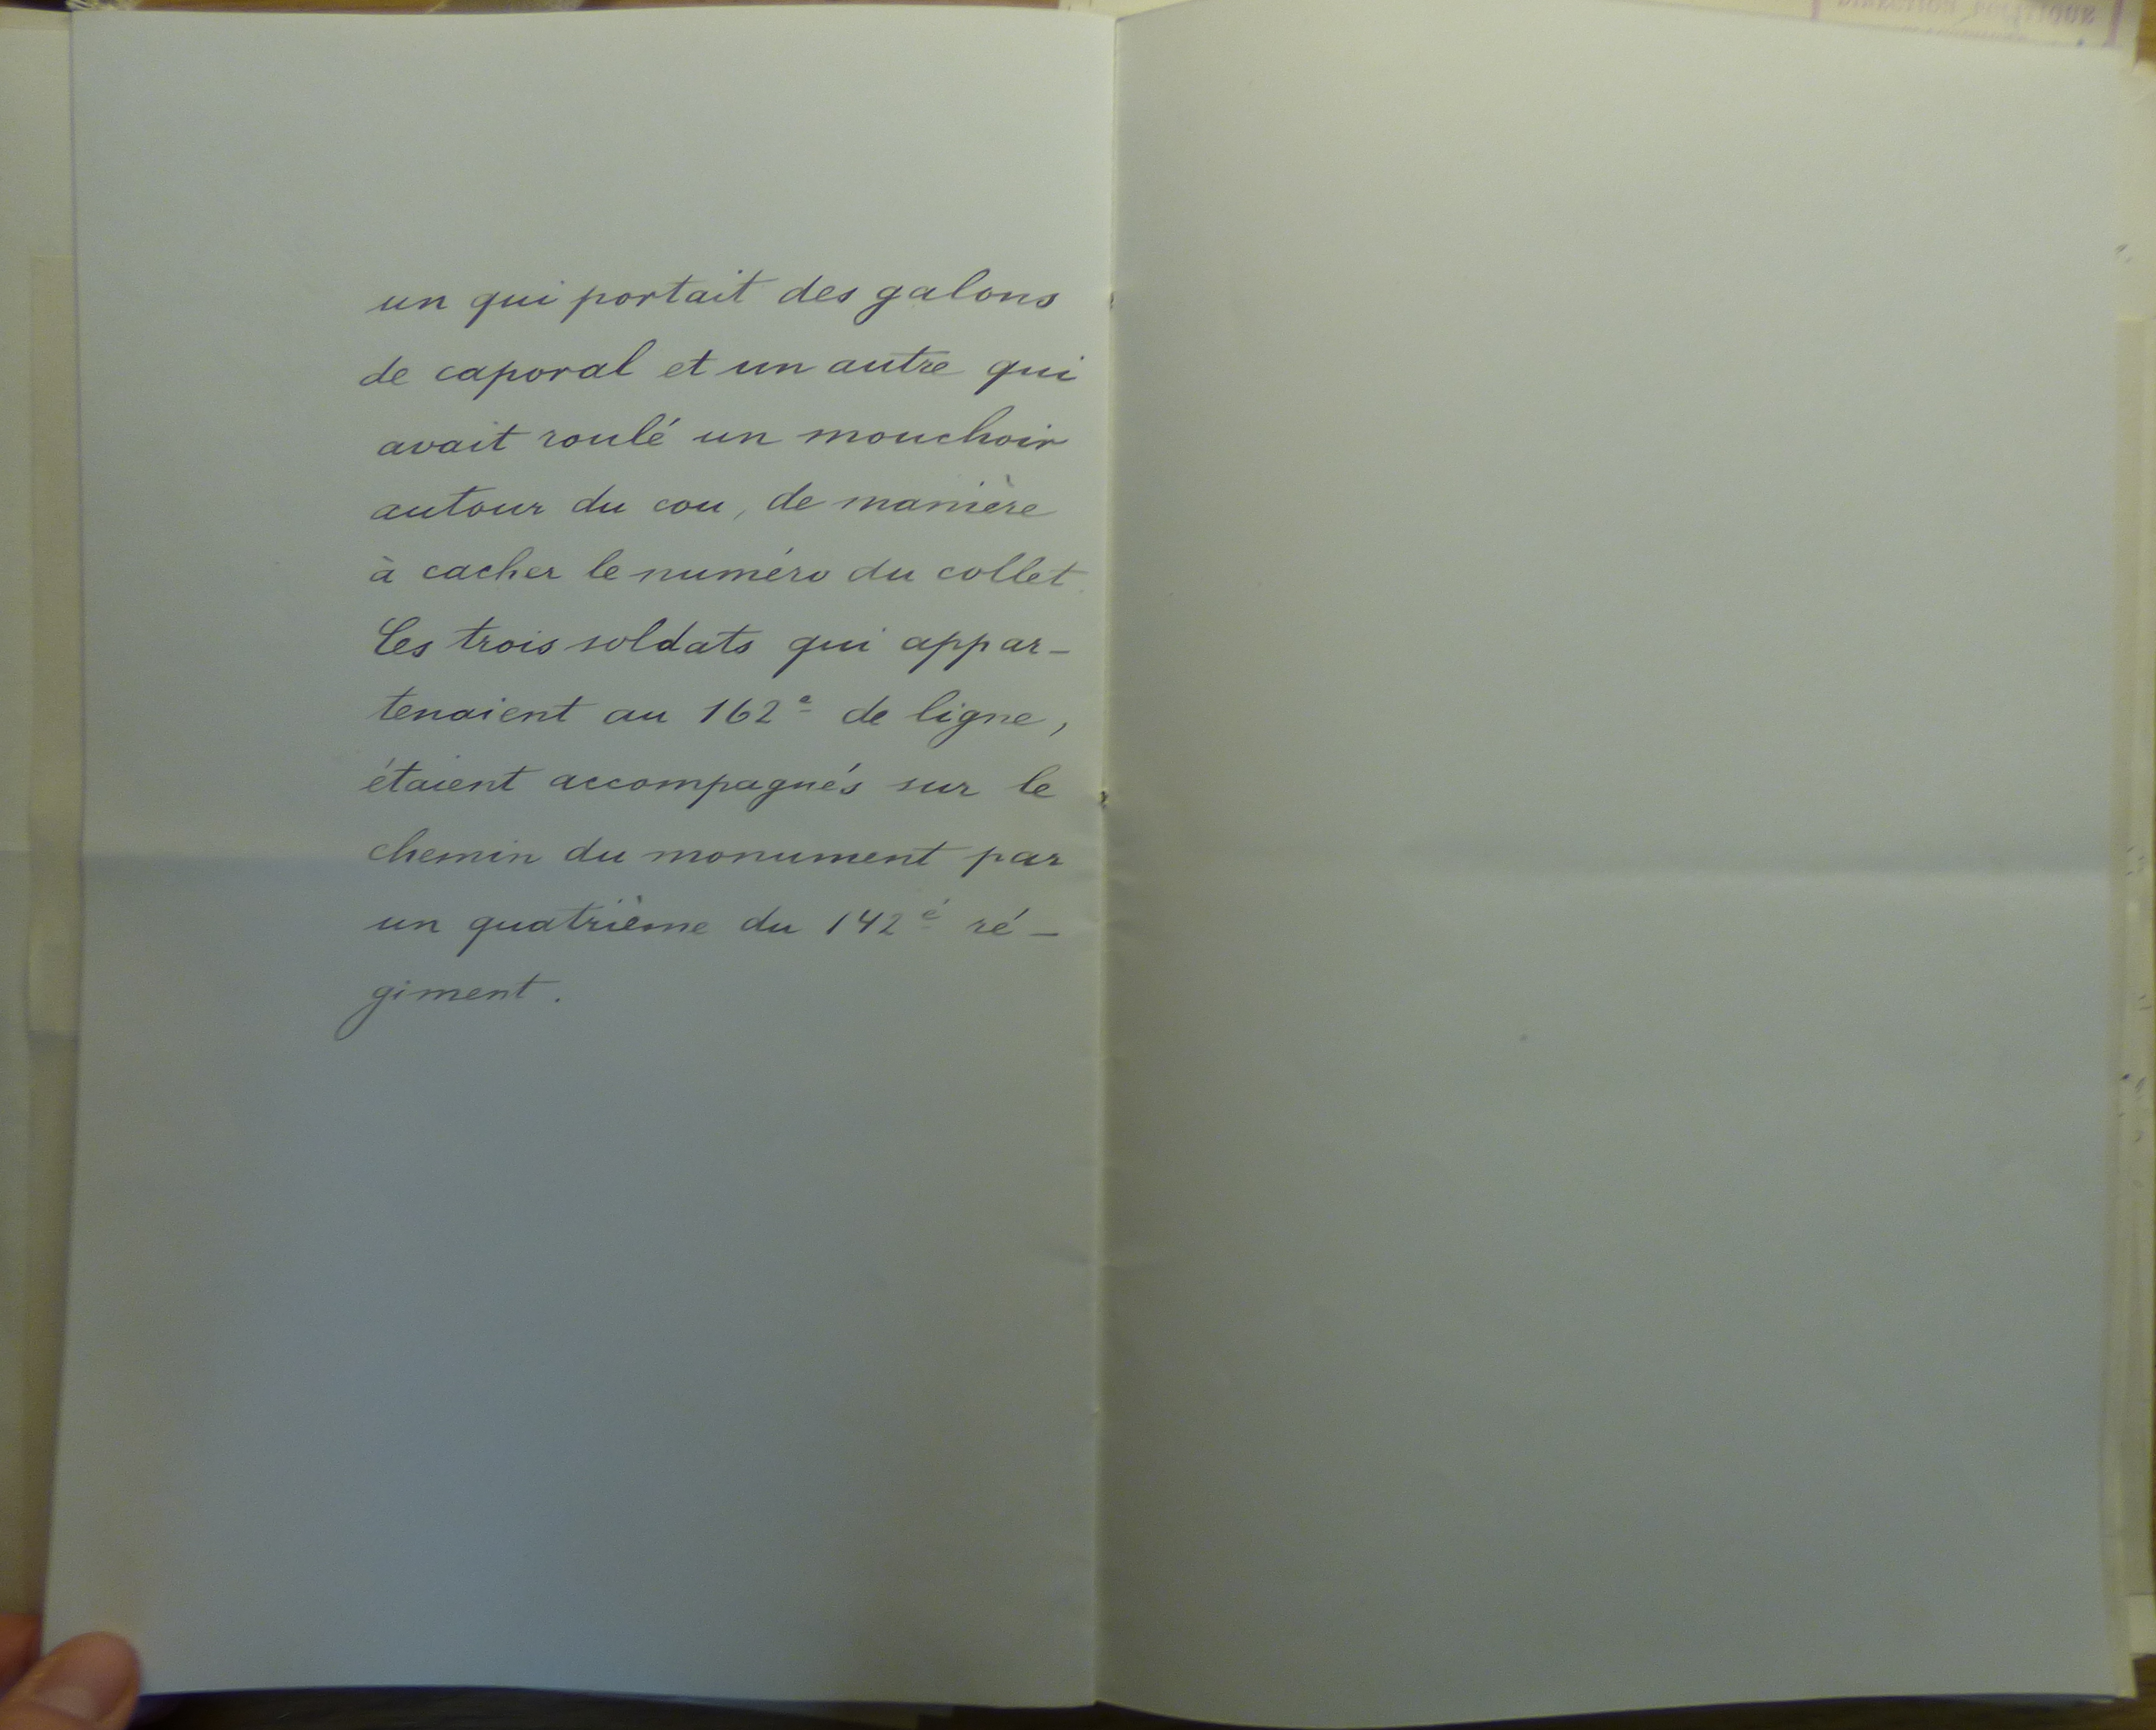 un qui portait des galons
de caporal et un autre qui
avait roulé un mouchoir
autour du cou, de manière
à cacher le numéro du collet.
Ces trois soldats qui appar-
tenaient au 162e de ligne,
étaient accompagnés sur le
chemin du monument par
un quatrième du 142e ré-
giment.